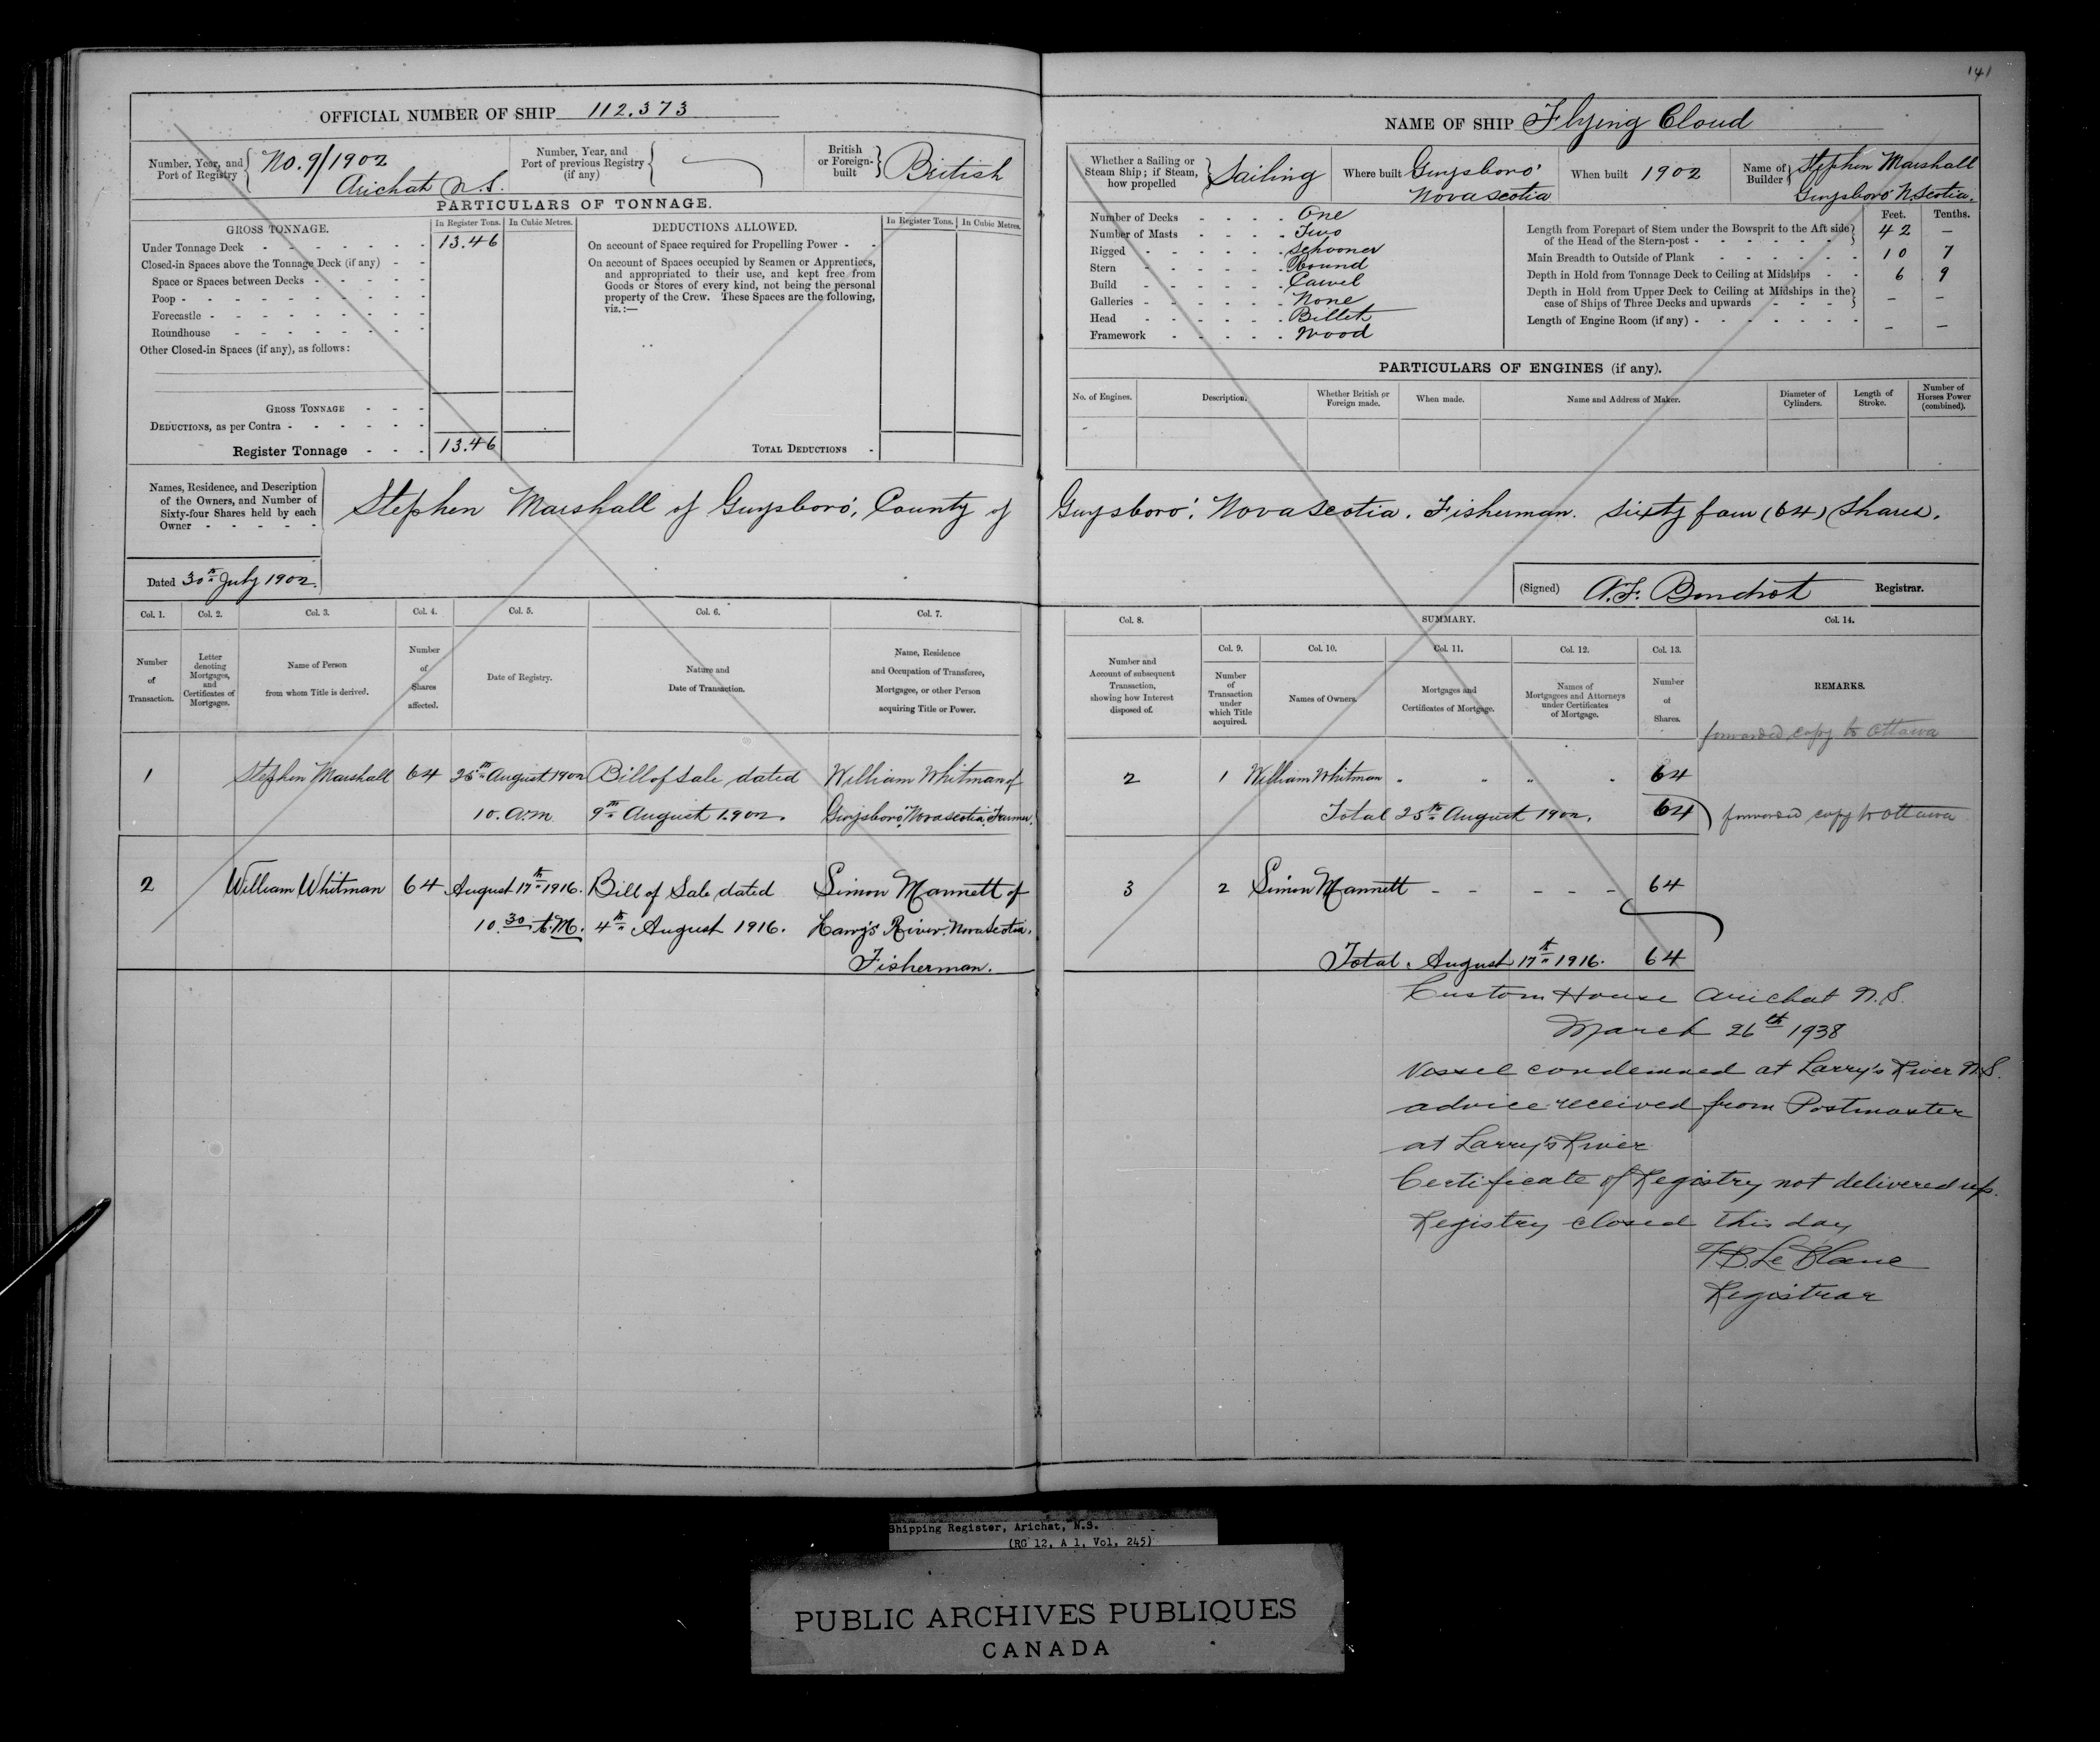 141
OFFICIAL NUMBER OF SHIP 112.373
Number, Year, and Port of Registry No. 9/1902
Arichat N.S.
Number, Year, and Port of previous Registry (if any)
British or Foreign-built British
PARTICULARS OF TONNAGE.
GROSS TONNAGE.
In Register Tons. In Cubic Metres.
Under Tonnage Deck 13.46
Closed-in Spaces above the Tonnage Deck (if any)
Space or Spaces between Decks
Poop
Forecastle
Roundhouse
Other Closed-in Spaces (if any), as follows:
GROSS TONNAGE
DEDUCTIONS, as per Contra
Register Tonnage 13.46
DEDUCTIONS ALLOWED.
In Register Tons. In Cubic Metres.
On account of Space required for Propelling Power
On account of Spaces occupied by Seamen or Apprentices,
and appropriated to their use, and kept free from
Goods or Stores of every kind, not being the personal
property of the Crew. These Spaces are the following,
viz.:—
TOTAL DEDUCTIONS
NAME OF SHIP Flying Cloud
Whether a Sailing or Steam Ship; if Steam, how propelled Sailing
Where built Guysboro' Nova Scotia
When built 1902
Name of Builder Stephen Marshall
Guysboro' N. Scotia.
Number of Decks One
Number of Masts Two
Rigged Schooner
Stern Round
Build Carvel
Galleries None
Head Billet
Framework Wood
Feet. Tenths.
Length from Forepart of Stem under the Bowsprit to the Aft side
of the Head of the Stern-post 42 —
Main Breadth to Outside of Plank 10 7
Depth in Hold from Tonnage Deck to Ceiling at Midships 6 9
Depth in Hold from Upper Deck to Ceiling at Midships in the
case of Ships of Three Decks and upwards — —
Length of Engine Room (if any) — —
PARTICULARS OF ENGINES (if any).
No. of Engines. Description. Whether British or Foreign made. When made. Name and Address of Maker. Diameter of Cylinders. Length of Stroke. Number of Horses Power (combined).
Names, Residence, and Description
of the Owners, and Number of
Sixty-four Shares held by each
Owner
Stephen Marshall of Guysboro', County of Guysboro', Nova Scotia. Fisherman. Sixty four (64) Shares.
Dated 30th July 1902.
(Signed) Registrar.
Col. 1. Col. 2. Col. 3. Col. 4. Col. 5. Col. 6. Col. 7.
Number of Transaction.
Letter denoting Mortgages, and Certificates of Mortgages.
Name of Person from whom Title is derived.
Number of Shares affected.
Date of Registry.
Nature and Date of Transaction.
Name, Residence and Occupation of Transferee, Mortgagee, or other Person acquiring Title or Power.
Col. 8. SUMMARY. Col. 14.
Col. 9. Col. 10. Col. 11. Col. 12. Col. 13.
Number and Account of subsequent Transaction, showing how Interest disposed of.
Number of Transaction under which Title acquired.
Names of Owners.
Mortgages and Certificates of Mortgage.
Names of Mortgagees and Attorneys under Certificates of Mortgage.
Number of Shares.
REMARKS.
forwarded copy to Ottawa
1 Stephen Marshall 64 25th August 1902 Bill of Sale dated William Whitman of
10. A.M. 9th August 1902. Guysboro' Nova Scotia, Farmer.
2 1 William Whitman 64
Total 25th August 1902. 64 forwarded copy to Ottawa
2 William Whitman 64 August 17th 1916. Bill of Sale dated Simon Mannett of
10.30 A.M. 4th August 1916. Larry's River. Nova Scotia.
Fisherman.
3 2 Simon Mannett - - - - - 64
Total. August 17th 1916. 64
Custom House Arichat N.S.
March 26th 1938
Vessel condemned at Larry's River N.S.
advice received from Postmaster
at Larry's River
Certificate of Registry not delivered up.
Registry closed this day
F.B. Le Blanc
Registrar
Shipping Register, Arichat, N.S.
(RG 12, A 1, Vol. 245)
PUBLIC ARCHIVES PUBLIQUES
CANADA